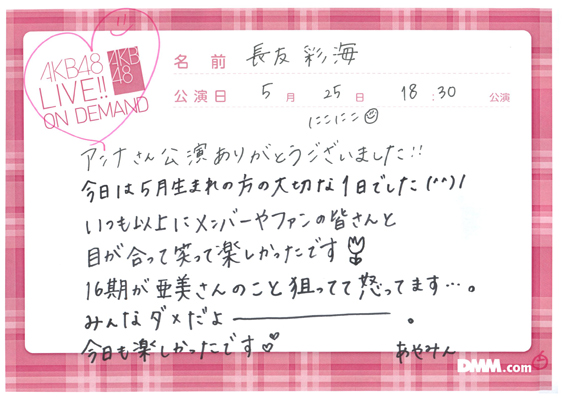 AKB48
LIVE!!
ON DEMAND
AKB
48
名 前 長友 彩海
公演日 5 月 25 日 18:30 公演
にこにこ
アンナさん公演ありがとうございました!!
今日は5月生まれの方の大切な1日でした(^^)/
いつも以上にメンバーやファンの皆さんと
目が合って笑って楽しかったです
16期が亜美さんのこと狙ってて怒ってます…。
みんなダメだよ――――。
今日も楽しかったです
あやみん
DMM.com